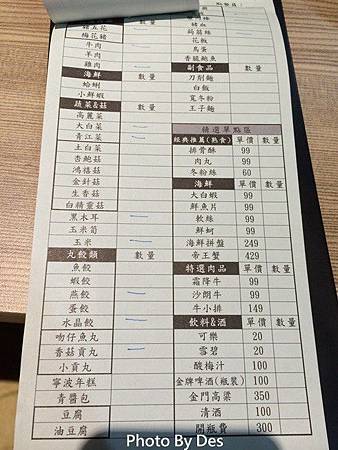 點餐員:
豬五花
梅花豬
牛肉
羊肉
雞肉
海鮮 數量
蛤蜊
小鮮蝦
蔬菜&菇 數量
高麗菜
大白菜
青江菜
土白菜
杏鮑菇
鴻禧菇
金針菇
生香菇
白精靈菇
黑木耳
玉米筍
玉米
丸餃類 數量
魚餃
蝦餃
燕餃
蛋餃
水晶餃
吻仔魚丸
香菇貢丸
小貢丸
寧波年糕
青醬包
豆腐
油豆腐
豬血
蒟蒻絲
花枝
鳥蛋
香脆鮑魚
副食品 數量
刀削麵
白飯
寬冬粉
王子麵
精選單點區
經典推薦(熟食) 單價 數量
排骨酥 99
肉丸 99
冬粉絲 60
海鮮 單價 數量
大白蝦 99
鮮魚片 99
軟絲 99
鮮蚵 99
海鮮拼盤 249
帝王蟹 429
特選肉品 單價 數量
霜降牛 99
沙朗牛 99
牛小排 149
飲料&酒 單價 數量
可樂 20
雪碧 20
酸梅汁 100
金牌啤酒(瓶裝) 100
金門高粱 350
清酒 100
開瓶費 300
Photo By Des